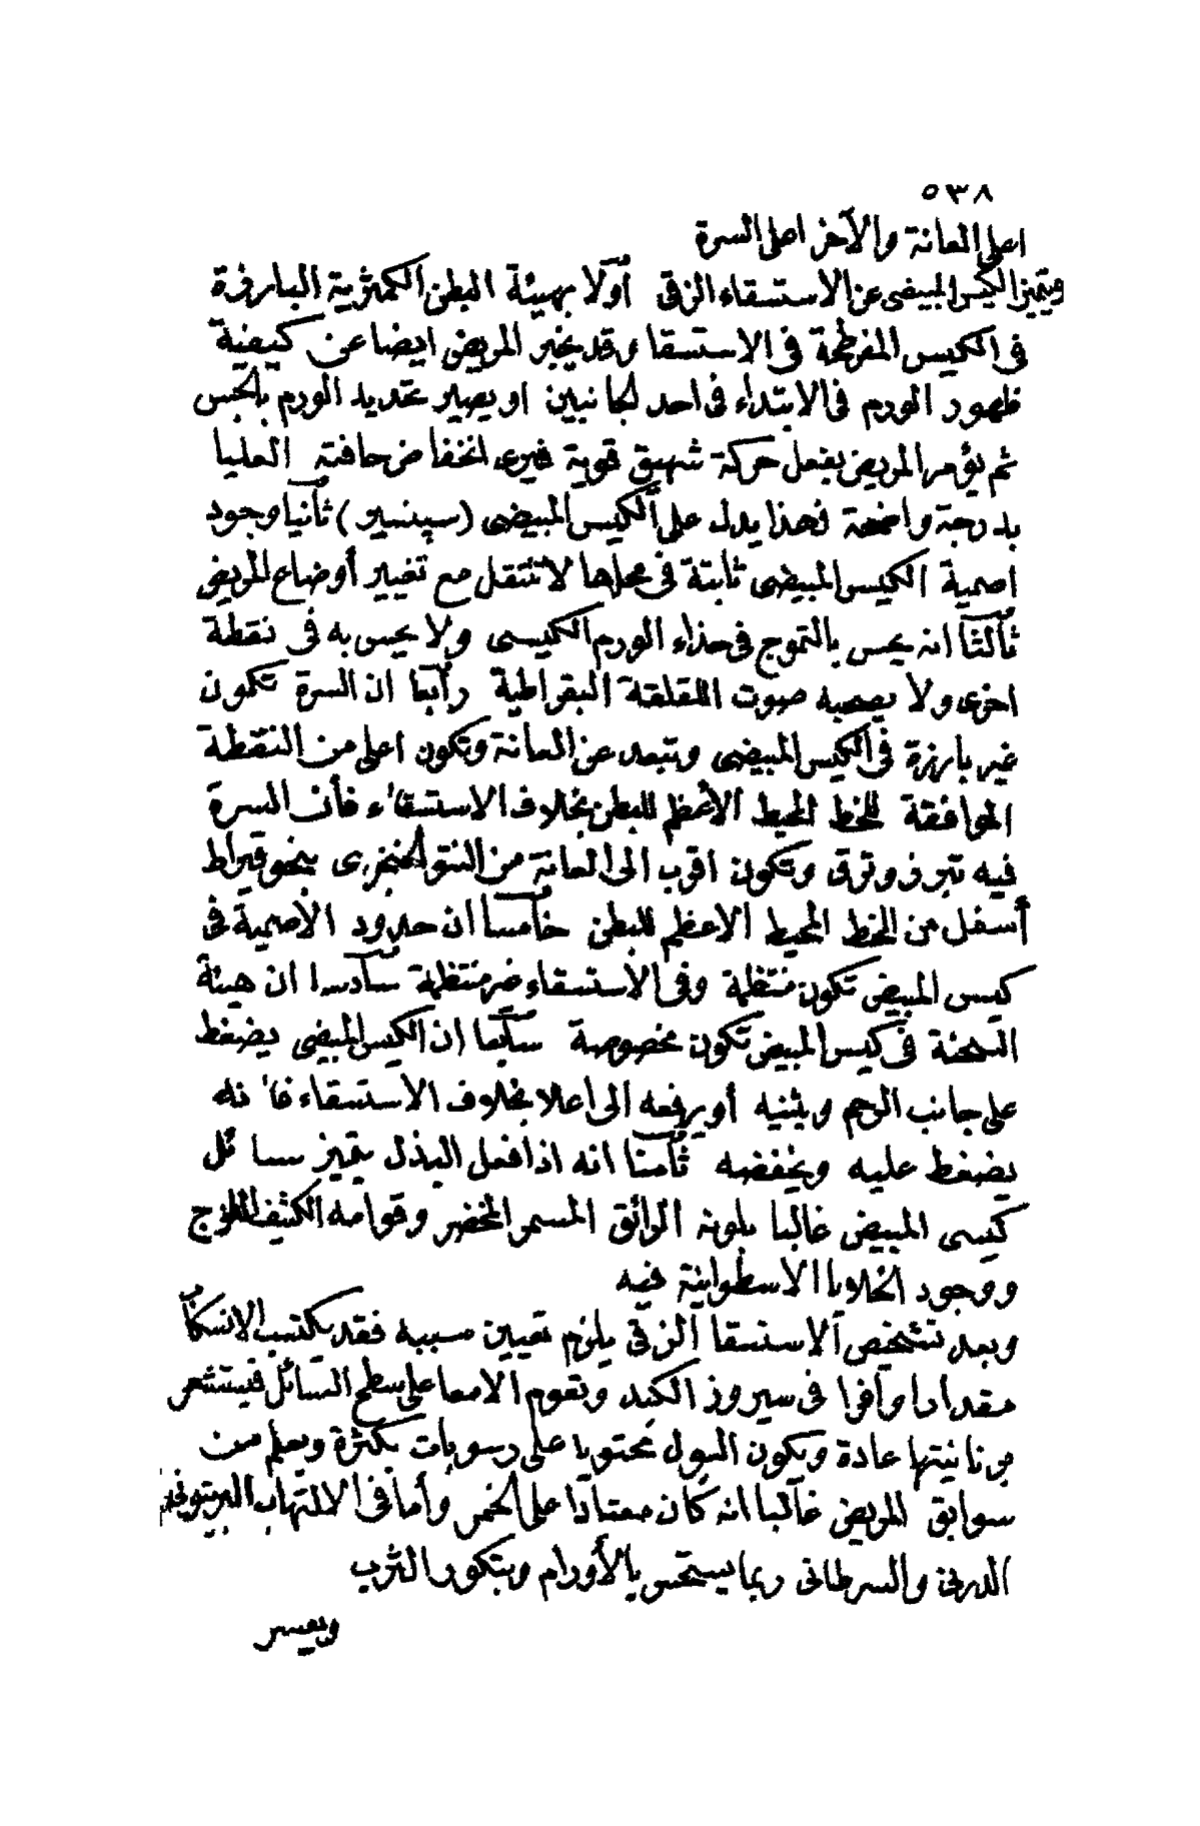 ٥٣٨
اعلى العانة والآخر اعلى السرة
ويتميز الكيس المبيضى عن الاستسقاء الزقى أولا بهيئة البطن الكمثرية البارزة
فى الكيس المفرطحة فى الاستسقا وقد يخبر المريض ايضا عن كيفية
ظهور الورم فى الابتداء فى احد لجانبين او يصير تحديد الورم بالجس
ثم يؤمر المريض بفعل حركة شهيق قوية فيرى انخفاض حافته العليا
بدرجة واضحة فهذا يدل على الكيس المبيضى (سپنسير) ثانيا وجود
اصمية الكيس المبيضى ثابتة فى محلها لا تنتقل مع تغيير أوضاع المريض
ثالثا انه يحس بالتموج فى حذاء الورم الكيسى ولا يحس به فى نقطة
اخرى ولا يصحبه صوت القلقة البقراطية رابعا ان السرة تكون
غير بارزة فى الكيس المبيضى وتبعد عن العانة وتكون اعلى من النقطة
الموافقة للخط المحيط الأعظم للبطن بخلاف الاستسقاء فأن السرة
فيه تبرز وترق وتكون اقرب الى العانة من النتو الخنجرى بنحو قيراط
أسفل من الخط المحيط الاعظم للبطن خامسا ان حدود الأصمية فى
كيس المبيض تكون منتظمة وفى الأستسقاء غير منتظمة سادسا ان هيئة
السحنة فى كيس المبيض تكون مخصوصة سابعا ان الكيس المبيضى يضغط
على جانب الرحم ويثنيه أو يرفعه الى اعلا بخلاف الاستسقاء فانه
يضغط عليه ويخفضه ثامنا انه اذا فعل البذل يتميز سائل
كيسى المبيض غالبا بلونه الرائق المسمر المخضر وقوامه الكثيف اللزج
ووجود الخلايا الاسطوانية فيه
وبعد تشخيص الاستسقا الزقى يلزم تعيين سببه فقد يكتسب الانسكاب
مقدارا وافرا فى سيروز الكبد وتعوم الامعا على سطح السائل فيستشعر
برنانيتها عادة ويكون البول محتويا على رسوبات بكثرة ويعلم من
سوابق المريض غالبا انه كان معتادا على الخمر وأما فى الالتهاب البريتونى
الدرنى والسرطانى ربما يستحس بالأورام وبتكور الثرب
ويعسر